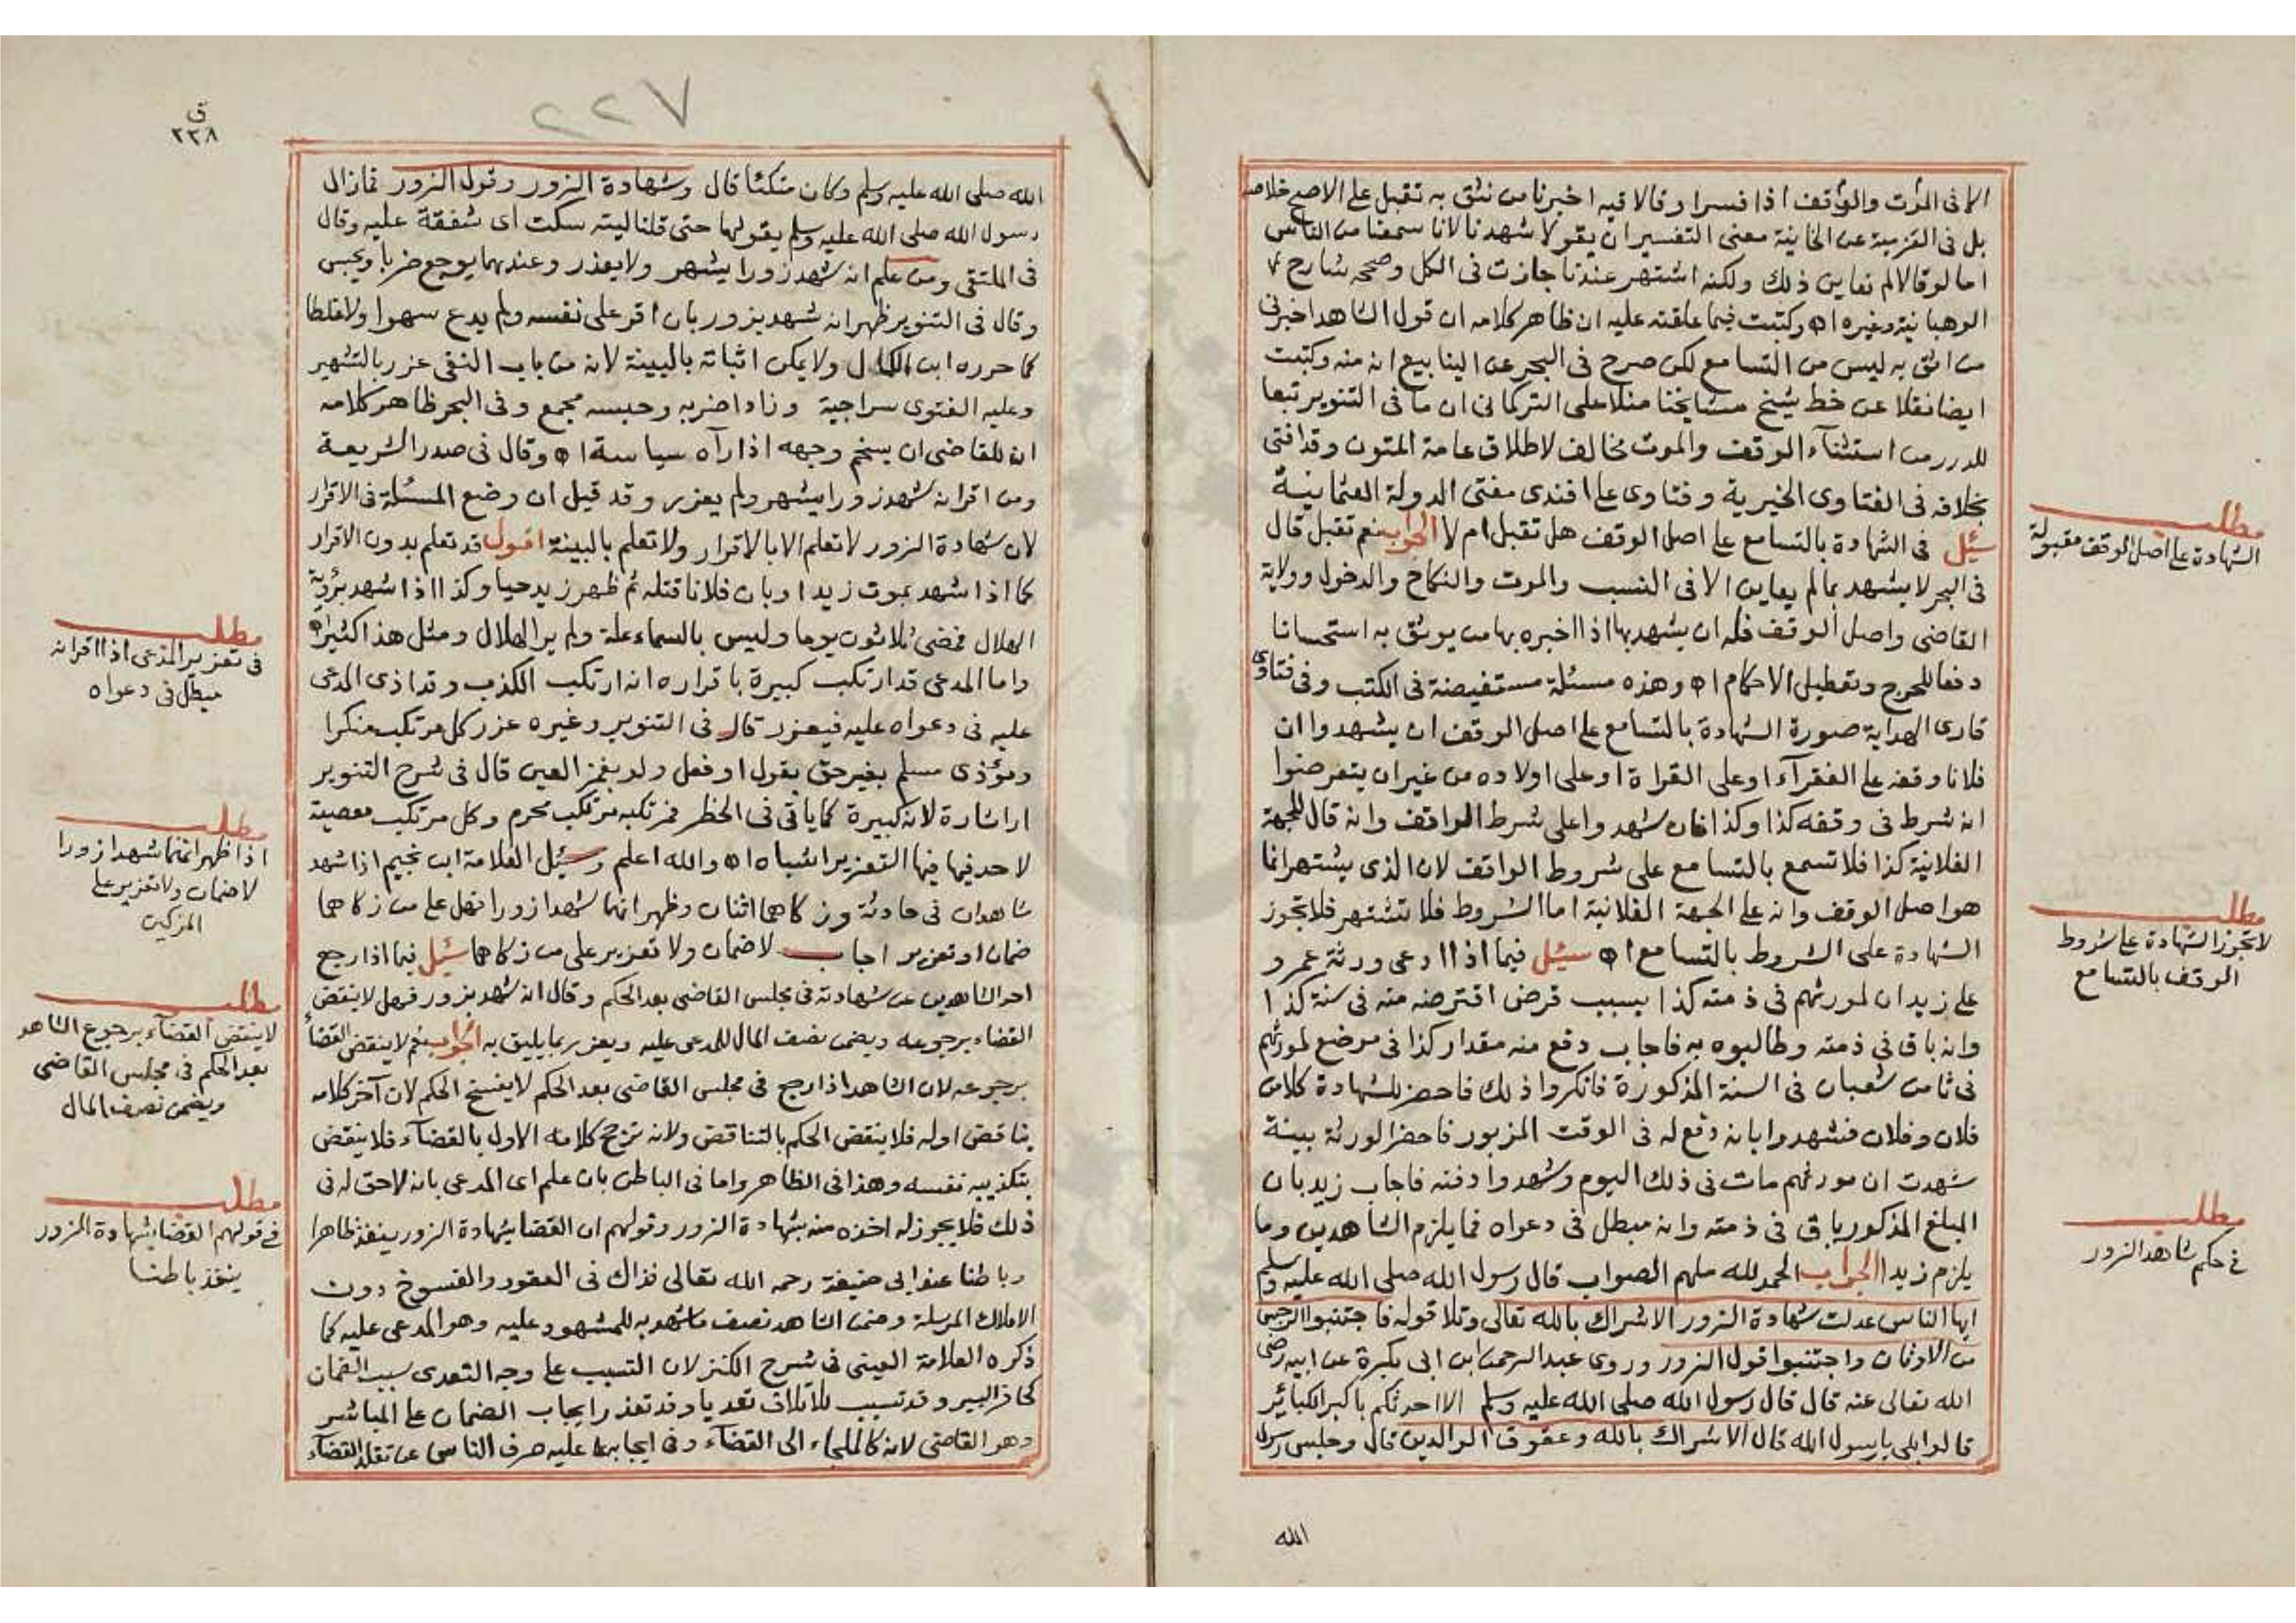 الا فى الموت والوقف اذا فسرا وقالا فيه اخبرنا من نثق به تقبل على الاصح خلاصه
بل فى العزمية عن الخانية معنى التفسير ان يقولا شهدنا لانا سمعنا من الناس
اما لو قالا لم نعاين ذلك ولكنه اشتهر عندنا جازت فى الكل وصححه شارح
الوهبانية وغيره اه وكتبت فيما علقته عليه ان ظاهر كلامه ان قول الشاهد اخبرنى
من اثق به ليس من التسامع لكن صرح فى البحر عن الينابيع انه منه وكتبت
ايضا نقلا عن خط شيخ مشايخنا منلا على التركمانى ان ما فى التنوير تبعا
للدرر من استثنآء الوقف والموت مخالف لاطلاق عامة المتون وقد افتى
بخلافه فى الفتاوى الخيرية وفتاوى على افندى مفتى الدولة العثمانية
سئل فى الشهادة بالتسامع على اصل الوقف هل تقبل ام لا الجواب نعم تقبل قال
فى البحر لا يشهد بما لم يعاين الا فى النسب والموت والنكاح والدخول وولاية
القاضى واصل الوقف فله ان يشهد بها اذا اخبره بها من يوثق به استحسانا
دفعا للحرج وتعطيل الاحكام اه وهذه مسئلة مستفيضة فى الكتب وفى فتاوى
قارى الهداية صورة الشهادة بالتسامع على اصل الوقف ان يشهدوا ان
فلانا وقفه على الفقرآء او على القراة او على اولاده من غير ان يتعرضوا
انه شرط فى وقفه كذا وكذا فان شهدوا على شرط الواقف وانه قال للجهة
الفلانية كذا فلا تسمع بالتسامع على شروط الواقف لان الذى يشتهر انما
هو اصل الوقف وانه على الجهة الفلانية اما الشروط فلا تشتهر فلا تجوز
الشهادة على الشروط بالتسامع اه سئل فيما اذا ادعى ورثة عمرو
على زيد ان لمورثهم فى ذمته كذا بسبب قرض اقترضه منه فى سنة كذا
وانه باق فى ذمته وطالبوه به فاجاب دفع منه مقدار كذا فى موضع لمورثهم
فى ثامن شعبان فى السنة المذكورة فانكروا ذلك فاحضر للشهادة كلا من
فلان وفلان فشهدوا بانه دفع له فى الوقت المزبور فاحضر الورثة بينة
شهدت ان مورثهم مات فى ذلك اليوم وشهدوا دفنه فاجاب زيد بان
المبلغ المذكور باق فى ذمته وانه مبطل فى دعواه فما يلزم الشاهدين وما
يلزم زيدا الجواب الحمد لله ملهم الصواب قال رسول الله صلى الله عليه وسلم
ايها الناس عدلت شهادة الزور الاشراك بالله تعالى وتلا قوله فاجتنبوا الرجس
من الاوثان واجتنبوا قول الزور وروى عبد الرحمن ابن ابى بكرة عن ابيه رضى
الله تعالى عنه قال قال رسول الله صلى الله عليه وسلم الا احدثكم باكبر الكبائر
قالوا بلى يا رسول الله قال الاشراك بالله وعقوق الوالدين قال وجلس رسول
الله
مطلب
الشهادة على اصل الوقف مقبولة
مطلب
لا تجوز الشهادة على شروط
الوقف بالتسامع
مطلب
فى حكم شاهد الزور
٢٢٧
ق
٢٣٨
الله صلى الله عليه وسلم وكان متكئا قال وشهادة الزور وقول الزور فمازال
رسول الله صلى الله عليه وسلم يقولها حتى قلنا ليته سكت اى شفقة عليه وقال
فى الملتقى ومن علم انه شهد زورا يشهر ولا يعذر وعندهما يوجع ضربا ويحبس
وقال فى التنوير ظهر انه شهد بزور بان اقر على نفسه ولم يدع سهوا ولا غلطا
كما حرره ابن الكمال ولا يمكن اثباته بالبينة لانه من باب النفى عزر بالتشهير
وعليه الفتوى سراجية وزادا ضربه وحبسه مجمع وفى البحر ظاهر كلامه
ان للقاضى ان يسخم وجهه اذا رآه سياسة اه وقال فى صدر الشريعة
ومن اقر انه شهد زورا يشهر ولم يعزر وقد قيل ان وضع المسئلة فى الاقرار
لان شهادة الزور لا تعلم الا بالاقرار ولا تعلم بالبينة اقول قد تعلم بدون الاقرار
كما اذا شهد بموت زيد او بان فلانا قتله ثم ظهر زيد حيا وكذا اذا شهد برؤية
الهلال فمضى ثلاثون يوما وليس بالسماء علة ولم ير الهلال ومثل هذا كثير اه
واما المدعى قد ارتكب كبيرة باقراره انه ارتكب الكذب وقد اذى المدعى
عليه فى دعواه عليه فيعزر قال فى التنوير وغيره عزر كل مرتكب منكرا
ومؤذى مسلم بغير حق بقول او فعل ولو بغمز العين قال فى شرح التنوير
او اشارة لانه كبيرة كما ياتى فى الحظر فمرتكبه مرتكب محرم وكل مرتكب معصية
لا حد فيها فيها التعزير اشباه اه والله اعلم وسئل العلامة ابن نجيم اذا شهد
شاهدان فى حادثة وزكاهما اثنان وظهر انهما شهدا زورا فهل على من زكاهما
ضمان او تعزير اجاب لا ضمان ولا تعزير على من زكاهما سئل فيما اذا رجع
احد الشاهدين عن شهادته فى مجلس القاضى بعد الحكم وقال انه شهد بزور فهل لا ينقض
القضاء برجوعه ويضمن نصف المال للمدعى عليه ويعزر بما يليق به الجواب نعم لا ينقض القضآء
برجوعه لان الشاهد اذا رجع فى مجلس القاضى بعد الحكم لا يفسخ الحكم لان آخر كلامه
يناقض اوله فلا ينقض الحكم بالتناقض ولانه ترجح كلامه الاول بالقضآء فلا ينقض
بتكذيبه نفسه وهذا فى الظاهر واما فى الباطن بان علم اى المدعى بانه لا حق له فى
ذلك فلا يجوز له اخذه منه بشهادة الزور وقولهم ان القضا بشهادة الزور ينفذ ظاهرا
وباطنا عند ابى حنيفة رحمه الله تعالى فذاك فى العقود والفسوخ دون
الاملاك المرسلة وضمن الشاهد نصف ما شهد به للمشهود عليه وهو المدعى عليه كما
ذكره العلامة العينى فى شرح الكنز لان التسبب على وجه التعدى سبب الضمان
كحافر البير وقد تسبب للاتلاف تعديا وقد تعذر ايجاب الضمان على المباشر
وهو القاضى لانه كالملجاء الى القضاء وفى ايجابه عليه صرف الناس عن تقلد القضآء
مطلب
فى تعزير المدعى اذا اقر انه
مبطل فى دعواه
مطلب
اذا ظهر انهما شهدا زورا
لا ضمان ولا تعزير على
المزكين
مطلب
لا ينتقض القضآء برجوع الشاهد
بعد الحكم فى مجلس القاضى
ويضمن نصف المال
مطلب
فى قولهم القضا بشهادة الزور
ينفذ باطنا